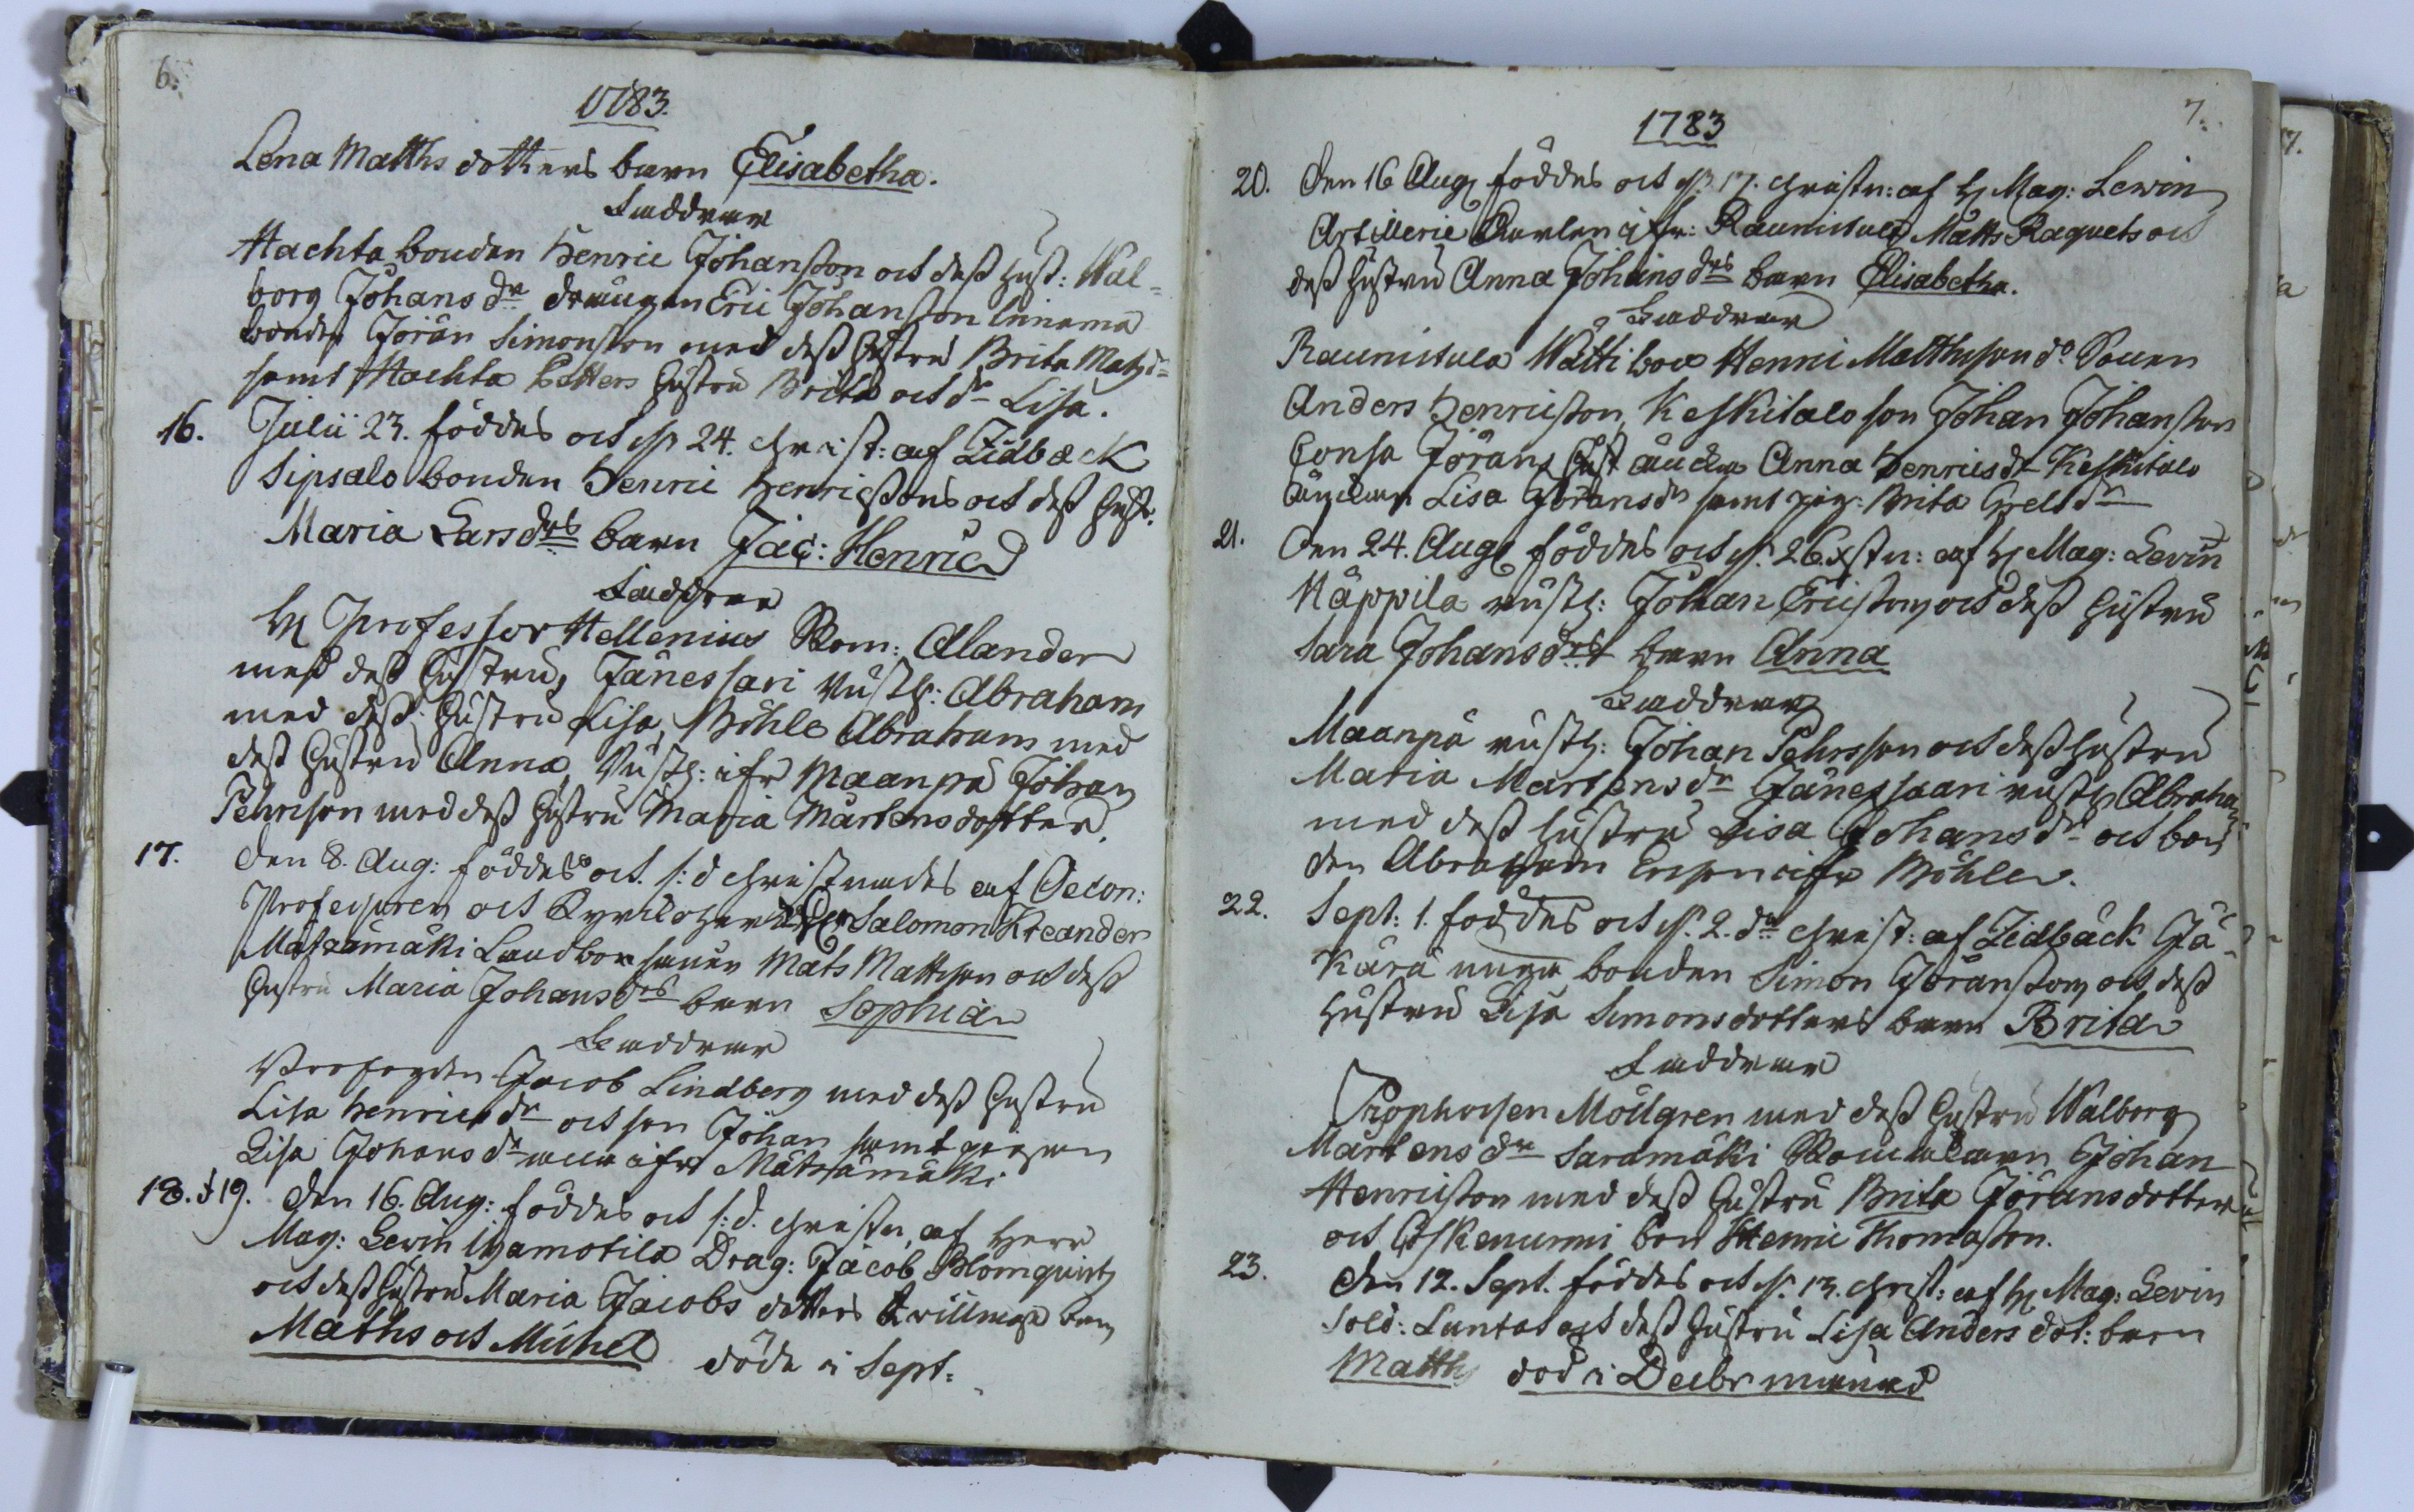 6.
1783.
Lena Matths dotters barn Elisabetha.
Faddrar
Hachta bonden Henric Johansson och dess hust: Wal-
borg Johans dr drängen Eric Johansson Ninama
bonden Jöran Simonsson med dess hustru Brita Mats dr
samt Hachta Petters hustru Brita och dr Lisa.
16. Julii 23. föddes och ch 24. christ: af Zidbäck
Sipsalo bonden Henric Henricssons och dess hust.
Maria Lars drs barn Jac: Henric
Faddrar
H Professor Hellenius Kom: Alander
med dess hustru, Jänessari rusth: Abraham
med dess hustru Lisa, Böhle Abraham med
dess hustru Anna, Rusth: ifr Maanpä Johan
Pehrsson med dess hustru Maria Mårtensdotter.
17. Den 8. Aug: föddes och s: d christnades af Oecon:
Professoren och Kyrckoherden Salomon Kreander
Mataramäki Landbonden Mats Mattsson och dess
hustru Maria Johans drs barn Sophia
Faddrar
Profossen Jacob Lindberg med dess hustru
Lisa Henrics dr och son Johan samt pigan
Lisa Johans dr alla ifr Mataramäki
18. & 19. Den 16. Aug: föddes och s: d. christn, af Herr
Mag: Levin Ihamotila Drag: Jacob Blomquist
och dess hustru Maria Jacobs dotters twillinge barn
Maths och Michel döda i Sept:
7.
1783
20. Den 16 Aug föddes och d. 17. christn: af H Mag: Lewin
Artillerie Karlen ifr: Raunistula Matts Raquets och
dess hustru Anna Johans drs barn Elisabetha.
Faddrar
Raunistula Wätti boe Henric Matthsson do Sonen
Anders Henricsson, Keskitalo son Johan Johansson
Consa Jörans hust änckan Anna Henrics dr Keskitalo
änckan Lisa Jörans dr samt pig: Brita Grels dr
21. Den 24. Aug föddes och d. 26. xstn: af H Mag: Levin
Käppila rusth: Johan Ericsson och dess hustru
Sara Johans drs barn Anna
Faddrar
Maanpä rusth: Johan Pehrsson och dess hustru
Maria Mårtens dr Jänessaari rusth Abraham
med dess hustru Lisa Johans dr och bon
den Abraham Ersson ifr Böhle.
22. Sept: 1. foddes och d. 2. dr christ: af Zidbäck Jä-
kärä bonden Simon Jöransson och dess
hustru Lisa Simonsdotters barn Brita
Faddrar
Prophossen Mollgren med dess hustru Walborg
Mårtens dr Saramäki Johan
Henricsson med dess hustru Brita Jöransdotter
och Koskenunni bon Henric Thomasson.
23. Den 12. Sept. föddes och d. 13. christ: af H Mag: Levin
Sold: Luntas och dess hustru Lisa Anders dot: barn
Matths död i Decbr månad